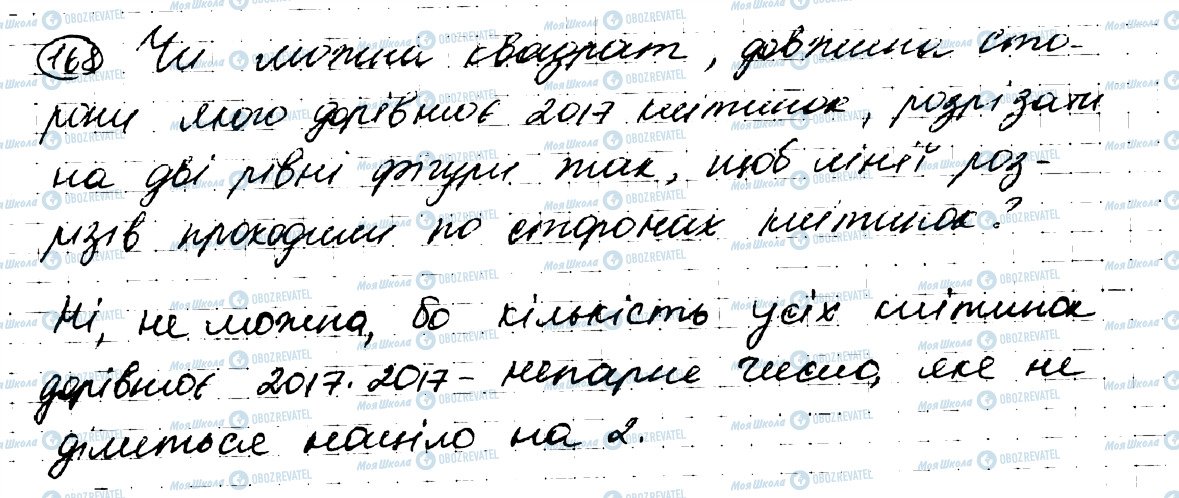 168 Чи можна квадрат, довжина сто-
рони якого дорівнює 2017 клітинок, розрізати
на дві рівні фігури так, щоб лінії роз-
різів проходили по сторонах клітинок?
Ні, не можна, бо кількість усіх клітинок
дорівнює 2017·2017 – непарне число, яке не
ділиться націло на 2.
Моя Школа OBOZREVATEL